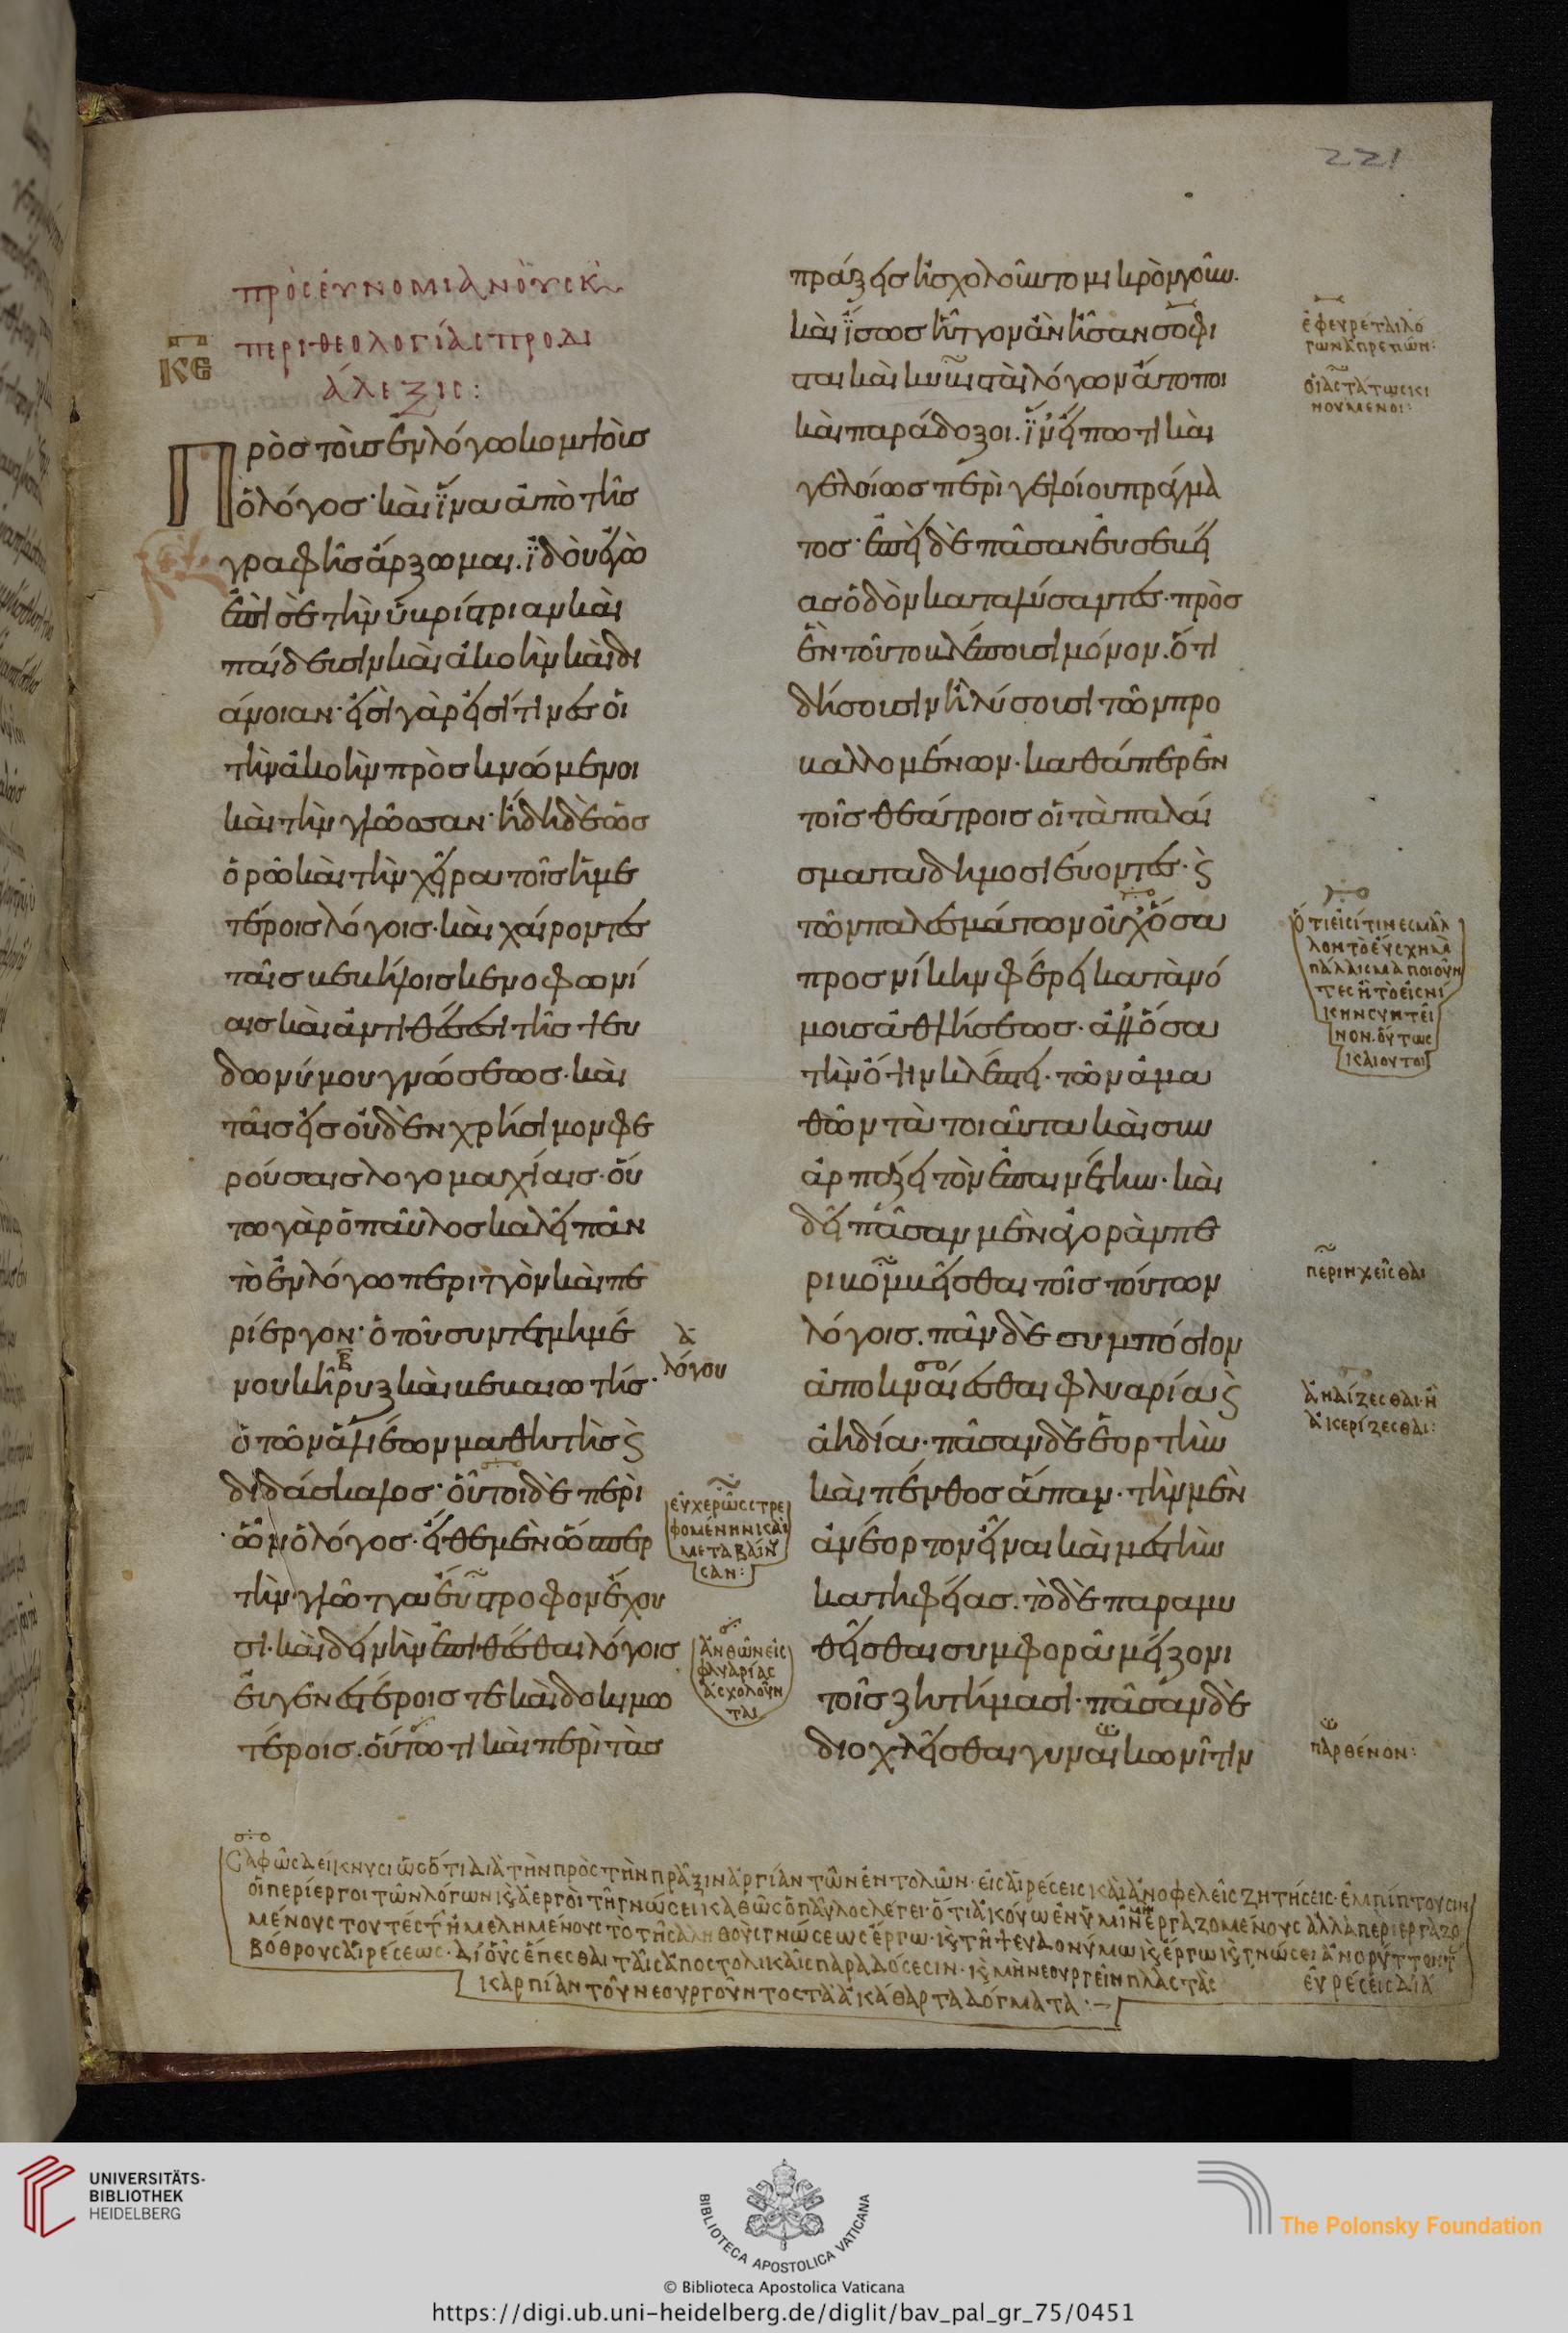 221
πρὸς εὐνομιανοὺς κὲ
περὶ θεολογίας προδι
άλεξις:
ΚΕ
Πρὸσ τοὺσ ἐν λόγω κομψοὺσ
ὁ λόγοσ· καὶ ἵνα ἀπὸ τῆσ
γραφῆσ ἄρξωμαι. ἰδοὺ ἐγὼ
ἐπὶ σὲ τὴν ὑβρίστριαν καὶ
παίδευσιν καὶ ἀκοὴν καὶ δι
άνοιαν· εἰσὶ γὰρ εἰσί τινεσ οἱ
τὴν ἀκοὴν προσκνώμενοι
καὶ τὴν γλῶσσαν· ἤδη δὲ ὡσ
ὁρῶ καὶ τὴν χεῖρα τοῖσ ἡμε
τέροισ λόγοισ· καὶ χαίροντεσ
ταῖσ βεβήλοισ κενοφωνί
αισ καὶ ἀντιθέσεσι τῆσ ψευ
δωνύμου γνώσεωσ· καὶ
ταῖσ εἰσ οὐδὲν χρήσιμον φε
ρούσαισ λογομαχίαισ· οὕ
τω γὰρ ὁ παῦλοσ καλεῖ πᾶν
τὸ ἐν λόγω περιττὸν καὶ πε
ρίεργον· ὁ τοῦ συντετμημέ
νου κῆρυξ καὶ βεβαιωτήσ·
ὁ τῶν ἁλιέων μαθητὴσ ϗ
διδάσκαλοσ· οὗτοι δὲ περὶ
ὧν ὁ λόγοσ· εἴθε μὲν ὥσπερ
τὴν γλῶτταν εὔστροφον ἔχου
σι· καὶ δεινὴν ἐπιθέσθαι λόγοισ
εὐγενεστέροισ τε καὶ δοκιμω
τέροισ. οὕτω τι καὶ περὶ τὰσ
ᾱ
λόγου
εὐχερῶς στρε
φομένην καὶ
μεταβαίν
σαν:
ἀνθῶν εἰς
φλυαρίας
ἀσχολοῦν
ται
πράξεισ ἠσχολοῦντο μικρὸν γοῦν.
καὶ ἴσωσ ἧττον ἂν ἦσαν σοφι
σταὶ καὶ κυβισταὶ λόγων ἄτοποι
καὶ παράδοξοι. ἵν' εἴπω τι καὶ
γελοίωσ περὶ γελοίου πράγμα
τοσ· ἐπεὶ δὲ πᾶσαν εὐσεβεί
ασ ὁδὸν καταλύσαντεσ· πρὸσ
ἓν τοῦτο βλέπουσι μόνον. ὅ τι
δήσουσιν ἢ λύσουσι τῶν προ
βαλλομένων· καθάπερ ἐν
τοῖσ θεάτροισ οἱ τὰ παλαί
σματα δημοσιεύοντεσ· ϗ
τῶν παλαισμάτων οὐχ ὅσα
πρὸσ νίκην φέρει κατὰ νό
μουσ ἀθλήσεωσ· ἀλλ' ὅσα
τὴν ὄψιν κλέπτει· τῶν ἀμα
θῶν τὰ τοιαῦτα καὶ συν
αρπάζει τὸν ἐπαινέτην· καὶ
δεῖ πᾶσαν μὲν ἀγορὰν πε
ριβομβεῖσθαι τοῖσ τούτων
λόγοισ. πᾶν δὲ συμπόσιον
ἀποκναίεσθαι φλυαρία ϗ
ἀηδία· πᾶσαν δὲ ἑορτὴν
καὶ πένθοσ ἅπαν· τὴν μὲν
ἀνέορτον εἶναι καὶ μεστὴν
κατηφείασ. τὸ δὲ παραμυ
θεῖσθαι συμφορᾶ μείζονι
τοῖσ ζητήμασι· πᾶσαν δὲ
διοχλεῖσθαι γυναικωνῖτιν
ἐφευρεταὶ λό
γων ἀπρεπῶν:
οἱ ἀστάτως κι
νούμενοι:
ὅτι εἰσί τινες μᾶλ
λον τὸ εὔσχημα
πάλαισμα ποιοῦν
τες ἢ τὸ εἰς νί
κην συντεῖ
νον. οὕτως
καὶ οὗτοι
περιηχεῖσθαι
ἀηδίζεσθαι· ἢ
παρθένον:
Σαφῶς δείκνυσι ὡς ὅτι διὰ τὴν πρὸς τὴν πρᾶξιν ἀργίαν τῶν ἐντολῶν· εἰς αἱρέσεις καὶ ἀνοφελεῖς ζητήσεις· ἐμπίπτουσιν
οἱ περίεργοι τῶν λόγων ϗ ἀεργοὶ τῆ γνώσει καθὼς ὁ παῦλος λέγει· ὅτι ἀκούω ἐν ὑμῖν μὴ ἐργαζομένους ἀλλὰ περιεργαζο
μένους τουτέστιν ἠμελημένους τὸ τῆς ἀληθοῦς γνώσεως ἔργω· ϗ τῆ ψευδονύμω ϗ ἔργω ϗ γνώσει ἀνορύττοντας
βόθρους αἱρέσεως· δι' οὓς ἕπεσθαι ταῖς ἀποστολικαῖς παραδόσεσιν· ϗ μὴ νεουργεῖν πλαστὰς εὑρέσεις διὰ
καρπίαν τοῦ νεουργοῦντος τὰ ἀκάθαρτα δόγματα:
UNIVERSITÄTS-
BIBLIOTHEK
HEIDELBERG
BIBLIOTECA APOSTOLICA VATICANA
The Polonsky Foundation
© Biblioteca Apostolica Vaticana
https://digi.ub.uni-heidelberg.de/diglit/bav_pal_gr_75/0451